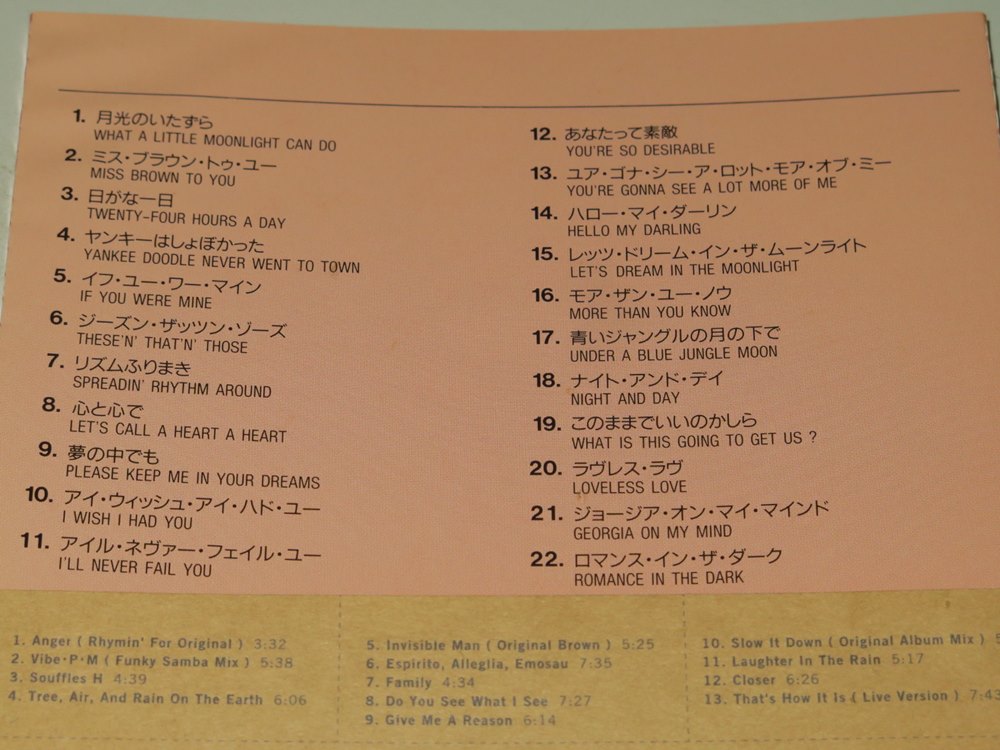 1. 月光のいたずら
WHAT A LITTLE MOONLIGHT CAN DO
2. ミス・ブラウン・トゥ・ユー
MISS BROWN TO YOU
3. 日がな一日
TWENTY-FOUR HOURS A DAY
4. ヤンキーはしょぼかった
YANKEE DOODLE NEVER WENT TO TOWN
5. イフ・ユー・ワー・マイン
IF YOU WERE MINE
6. ジーズン・ザッツン・ゾーズ
THESE'N' THAT'N' THOSE
7. リズムふりまき
SPREADIN' RHYTHM AROUND
8. 心と心で
LET'S CALL A HEART A HEART
9. 夢の中でも
PLEASE KEEP ME IN YOUR DREAMS
10. アイ・ウィッシュ・アイ・ハド・ユー
I WISH I HAD YOU
11. アイル・ネヴァー・フェイル・ユー
I'LL NEVER FAIL YOU
12. あなたって素敵
YOU'RE SO DESIRABLE
13. ユア・ゴナ・シー・ア・ロット・モア・オブ・ミー
YOU'RE GONNA SEE A LOT MORE OF ME
14. ハロー・マイ・ダーリン
HELLO MY DARLING
15. レッツ・ドリーム・イン・ザ・ムーンライト
LET'S DREAM IN THE MOONLIGHT
16. モア・ザン・ユー・ノウ
MORE THAN YOU KNOW
17. 青いジャングルの月の下で
UNDER A BLUE JUNGLE MOON
18. ナイト・アンド・デイ
NIGHT AND DAY
19. このままでいいのかしら
WHAT IS THIS GOING TO GET US ?
20. ラヴレス・ラヴ
LOVELESS LOVE
21. ジョージア・オン・マイ・マインド
GEORGIA ON MY MIND
22. ロマンス・イン・ザ・ダーク
ROMANCE IN THE DARK
1. Anger ( Rhymin' For Original ) 3:32
2. Vibe・P・M ( Funky Samba Mix ) 5:38
3. Souffles H 4:39
4. Tree, Air, And Rain On The Earth 6:06
5. Invisible Man ( Original Brown ) 5:25
6. Espirito, Alleglia, Emosau 7:35
7. Family 4:34
8. Do You See What I See 7:27
9. Give Me A Reason 6:14
10. Slow It Down ( Original Album Mix )
11. Laughter In The Rain 5:17
12. Closer 6:26
13. That's How It Is ( Live Version ) 7:43